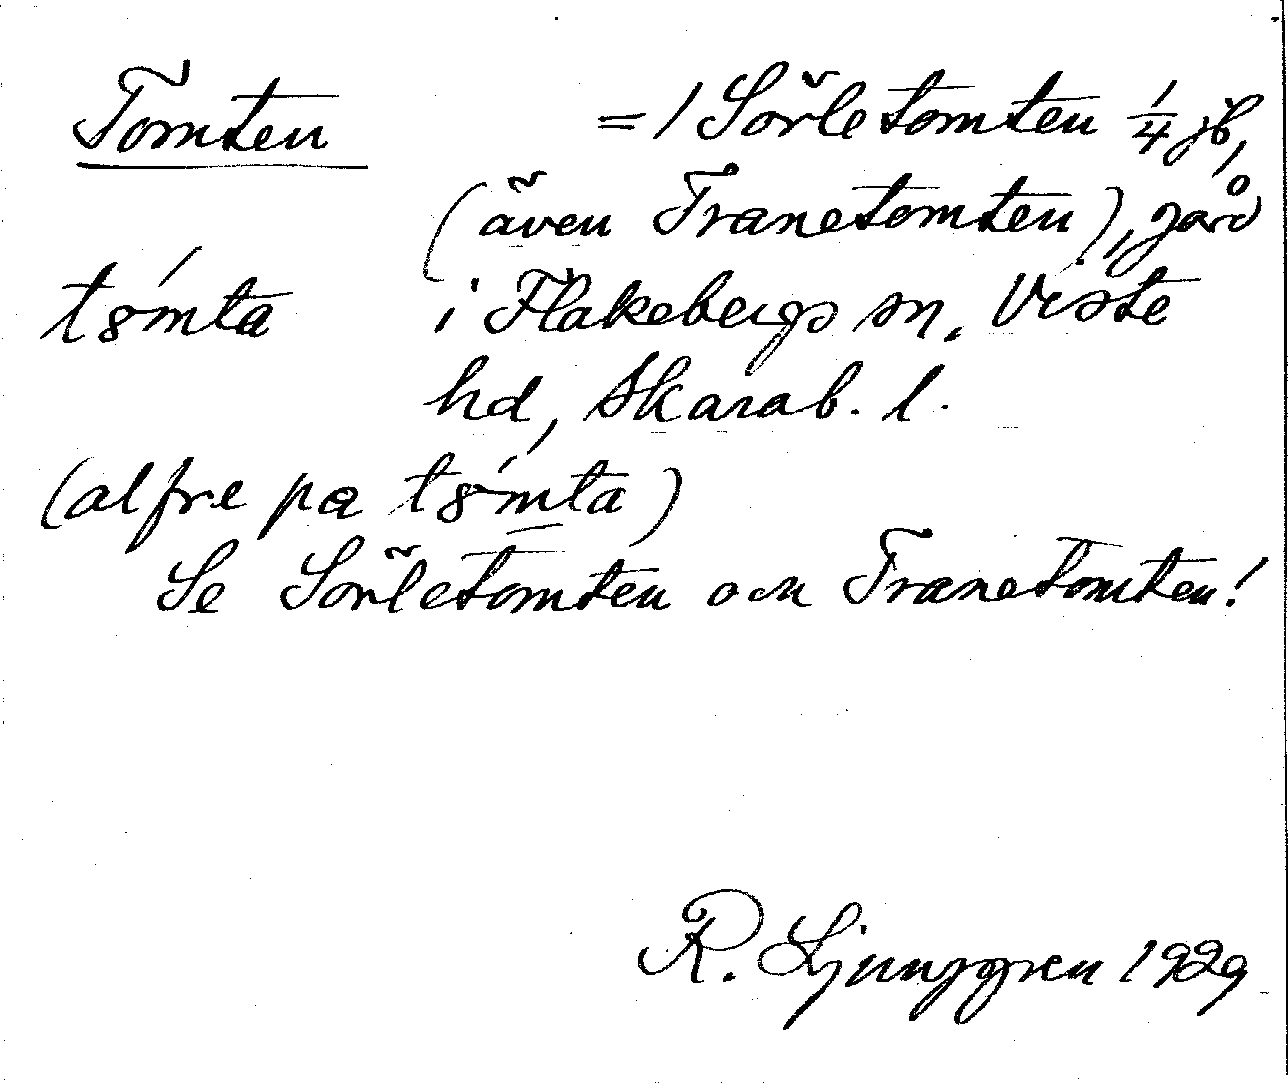 Tomten = 1 Sörletomten 1/4 jb,
(även Tranetomten), gård
tsómta i Flakebergs sn. Viste
hd, Skarab. l.
(alfre pa tsómta)
Se Sörletomten och Tranetomten!
R. Ljunggren 1929